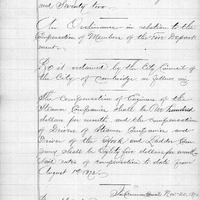 and Seventy two.
An Ordinance in relation to the
Compensation of Members of the Fire Depart
ment.
Be it ordained by the City Council of
the City of Cambridge as follows
The Compensation of Engineer of the
Steamer Companies shall be One hundred
dollars per month and the compensation
of Driver of Steamer Companies and
Driver of the Hook and Ladder Com
pany shall be Eighty five dollars per month
Said rates of compensation to date from
August 1st 1872.